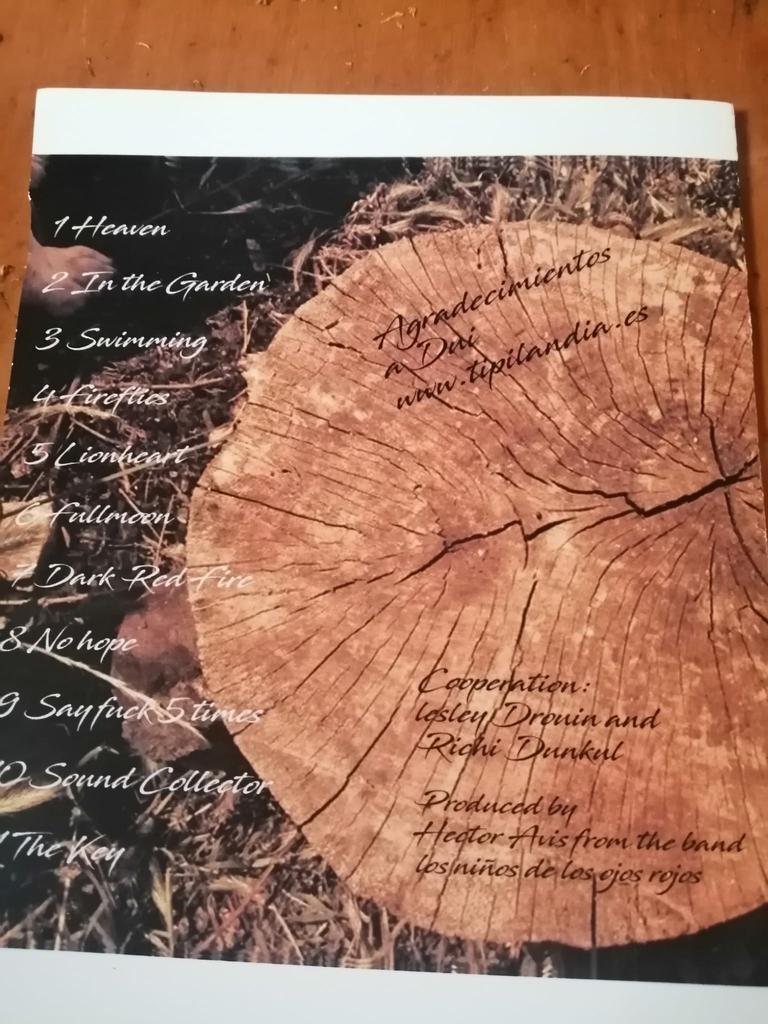 1 Heaven
2 In the Garden
3 Swimming
4 Fireflies
5 Lionheart
6 Fullmoon
7 Dark Red Fire
8 No hope
9 Say fuck 5 times
10 Sound Collector
11 The Key
Agradecimientos
a Dui
www.tipilandia.es
Cooperation:
Lesley Drouin and
Richi Dunkul
Produced by
Hector Avis from the band
los niños de los ojos rojos